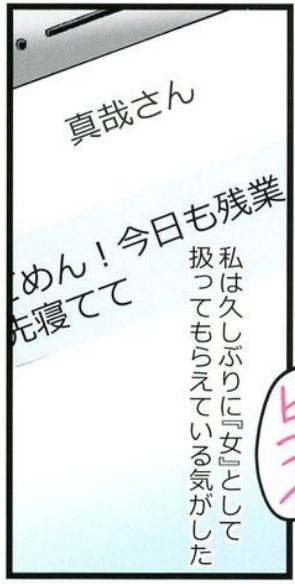 真哉さん
ごめん！今日も残業
先寝てて
私は久しぶりに『女』として
扱ってもらえている気がした